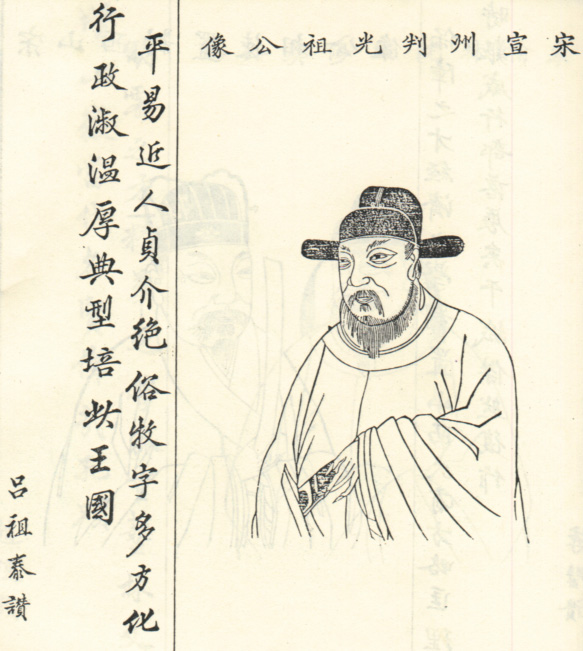 宋宣州判光祖公像
平易近人貞介絶俗牧字多方化
行政淑温厚典型培此王國
呂祖泰讚